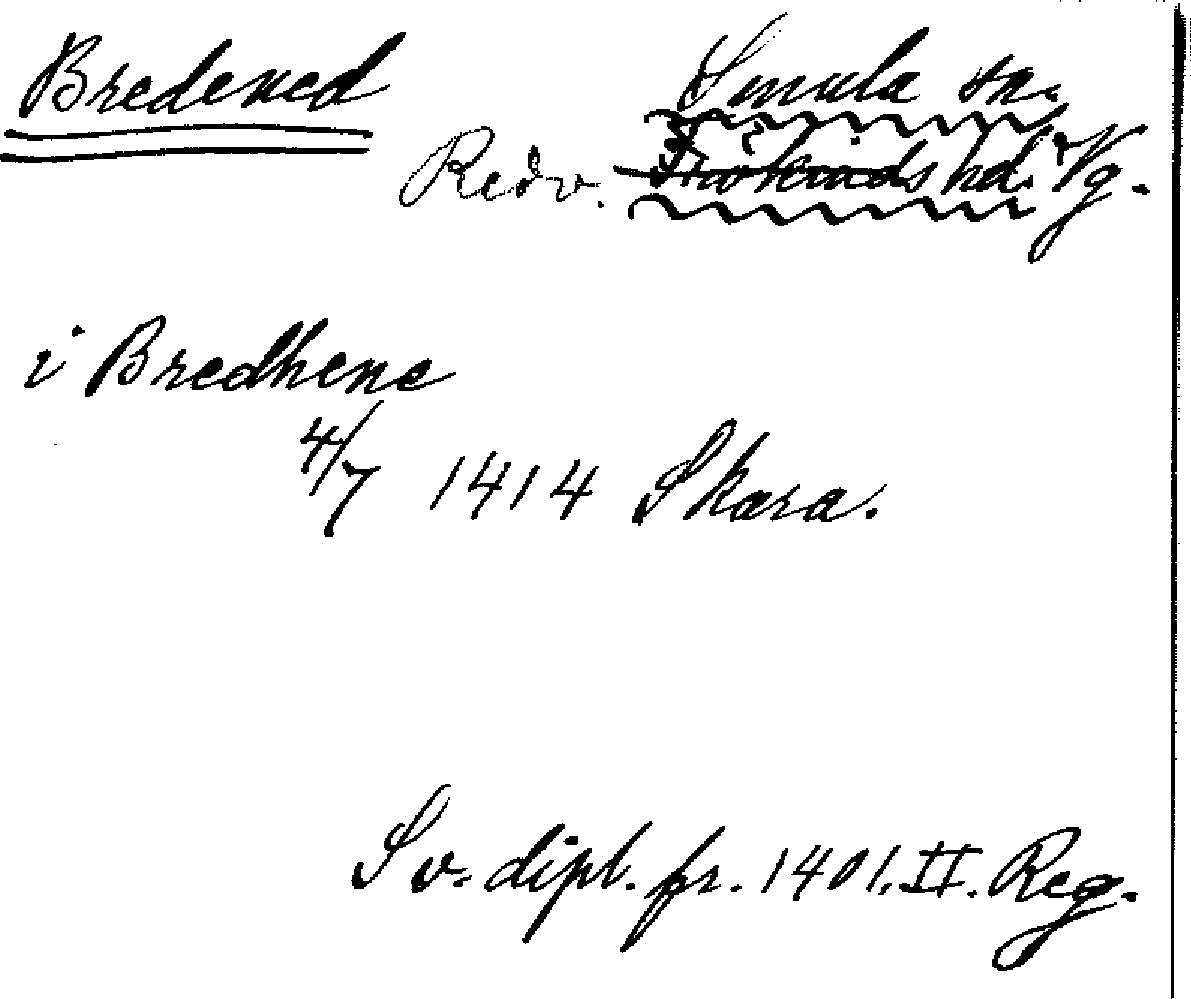 Bredened
Smula sn.
Redv. Frökinds hd. Vg.
i Bredhene
4/7 1414 Skara.
Sv. dipl. fr. 1401. II. Reg.